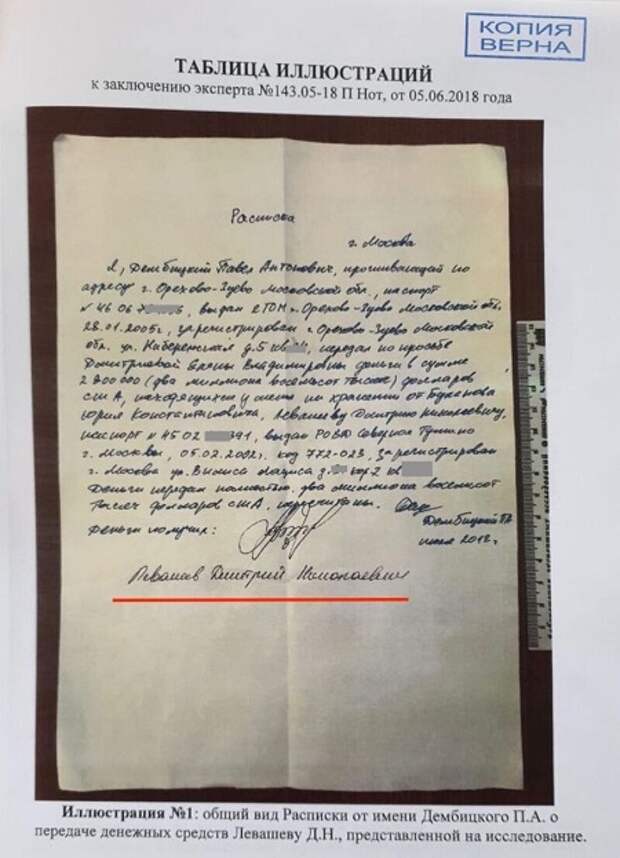 КОПИЯ
ВЕРНА
ТАБЛИЦА ИЛЛЮСТРАЦИЙ
к заключению эксперта №143.05-18 П Нот, от 05.06.2018 года
Расписка
г. Москва
Я, Дембицкий Павел Антонович, проживающий по
адресу г. Орехово-Зуево Московской обл., паспорт
N 46 06 выдан 2 ГОМ г. Орехово-Зуево Московской обл.
28.01.2005г, зарегистрирован г. Орехово-Зуево Московской
обл. ул. д.5 кв передал по просьбе
Дмитриевой Владимировны деньги в сумме
2 800 000 (два миллиона восемьсот тысяч) долларов
США, находящихся у меня на хранении от
Юрия Константиновича, Левашеву Дмитрию Николаевичу,
паспорт N 45 02 391, выдан РОВД Северное Тушино
г. Москвы, 05.02.2002г. код 772-023, зарегистрирован
г. Москва ул. Вилиса Лациса д. кор 2 кв
Деньги передал полностью. два миллиона восемьсот
тысяч долларов США, пересчитаны.
Деньги получил:
Дембицкий ПА
июля 2012г
Левашев Дмитрий Николаевич
Иллюстрация №1: общий вид Расписки от имени Дембицкого П.А. о
передаче денежных средств Левашеву Д.Н., представленной на исследование.